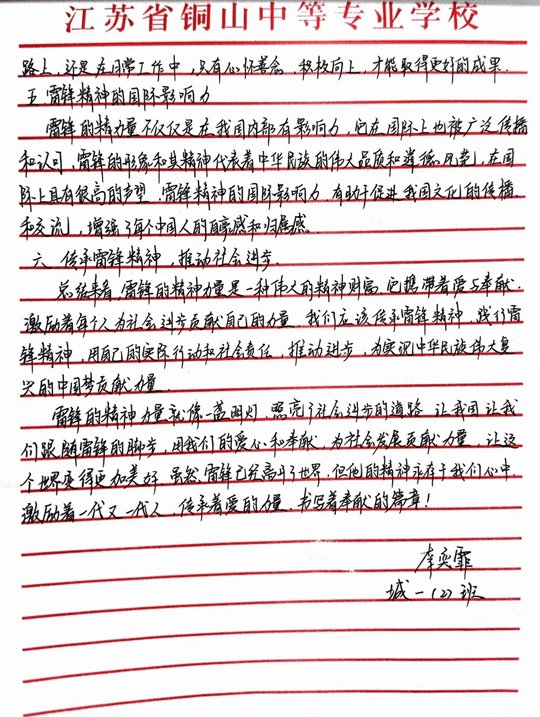 江苏省铜山中等专业学校
路上，还是在日常工作中，只有心怀善念，积极向上，才能取得更好的成果.
五 雷锋精神的国际影响力
雷锋的精力量不仅仅是在我国内部有影响力，它在国际上也被广泛传播
和认可，雷锋的形象和其精神代表着中华民族的伟大品质和道德风范，在国
际上具有很高的声望，雷锋精神的国际影响力，有助于促进我国文化的传播
和交流，增强了每个中国人的自豪感和归属感
六 传承雷锋精神，推动社会进步.
总结来看，雷锋的精神力量是一种伟大的精神财富，它携带着爱与奉献.
激励着每个人为社会进步贡献自己的力量. 我们应该传承雷锋精神，践行雷
锋精神，用自己的实际行动和社会责任，推动进步，为实现中华民族伟大复
兴的中国梦贡献力量.
雷锋的精神力量就像一盏明灯，照亮了社会进步的道路. 让我国让我
们跟随雷锋的脚步，用我们的爱心和奉献，为社会发展贡献力量，让这
个世界变得更加美好. 虽然，雷锋已经离开了世界，但他的精神永存于我们心中.
激励着一代又一代人，传承着爱的力量，书写着奉献的篇章！
李奕霏
城一(2)班